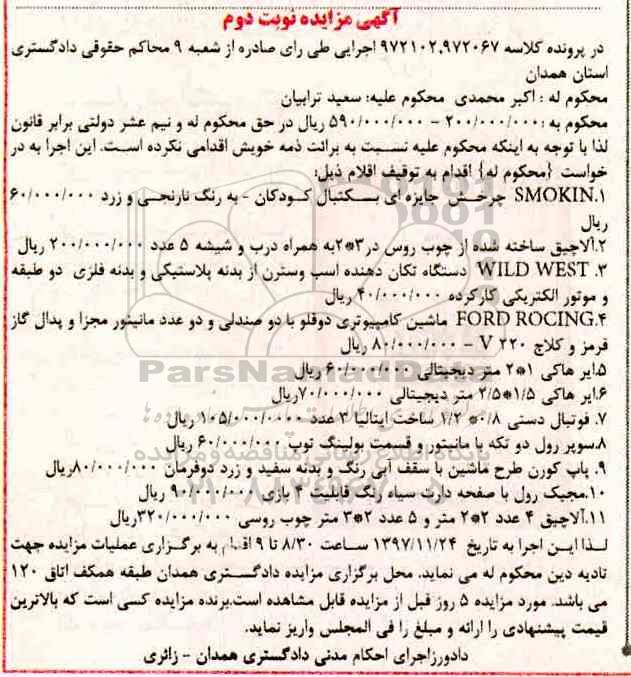 آگهی مزایده نوبت دوم
در پرونده کلاسه ۹۷۲۱۰۲،۹۷۲۰۶۷ اجرایی طی رای صادره از شعبه ۹ محاکم حقوقی دادگستری
استان همدان
محکوم له : اکبر محمدی محکوم علیه: سعید ترابیان
محکوم به :۲۰۰/۰۰۰/۰۰۰ – ۵۹۰/۰۰۰/۰۰۰ ریال در حق محکوم له و نیم عشر دولتی برابر قانون
لذا با توجه به اینکه محکوم علیه نسبت به برائت ذمه خویش اقدامی نکرده است. این اجرا به در
خواست {محکوم له} اقدام به توقیف اقلام ذیل:
۱.SMOKIN چرخش جایزه ای بسکتبال کودکان - به رنگ نارنجی و زرد ۶۰/۰۰۰/۰۰۰
ریال
۲.آلاچیق ساخته شده از چوب روس در۳*۲به همراه درب و شیشه ۵ عدد ۲۰۰/۰۰۰/۰۰۰ ریال
۳. WILD WEST دستگاه تکان دهنده اسب وسترن از بدنه پلاستیکی و بدنه فلزی دو طبقه
و موتور الکتریکی کارکرده ۴۰/۰۰۰/۰۰۰ ریال
۴.FORD ROCING ماشین کامپیوتری دوقلو با دو صندلی و دو عدد مانیتور مجزا و پدال گاز
قرمز و کلاج ۲۲۰ V – ۸۰/۰۰۰/۰۰۰ ریال
۵.ایر هاکی ۱*۲ متر دیجیتالی ۶۰/۰۰۰/۰۰۰ ریال
۶.ایر هاکی ۱/۵*۲/۵ متر دیجیتالی ۷۰/۰۰۰/۰۰۰ریال
۷. فوتبال دستی ۰/۸* ۱/۲ ساخت ایتالیا ۳ عدد ۱۰۵/۰۰۰/۰۰۰ ریال
۸.سوپر رول دو تکه با مانیتور و قسمت بولینگ توپ ۶۰/۰۰۰/۰۰۰ ریال
۹. پاپ کورن طرح ماشین با سقف آبی رنگ و بدنه سفید و زرد دوفرمان ۸۰/۰۰۰/۰۰۰ریال
۱۰.مجیک رول با صفحه دارت سیاه رنگ قابلیت ۴ بازی ۹۰/۰۰۰/۰۰۰ ریال
۱۱.آلاچیق ۴ عدد ۲*۲ متر و ۵ عدد ۲*۳ متر چوب روسی ۳۲۰/۰۰۰/۰۰۰ریال
لذا این اجرا به تاریخ ۱۳۹۷/۱۱/۲۴ ساعت ۸/۳۰ تا ۹ اقدام به برگزاری عملیات مزایده جهت
تادیه دین محکوم له می نماید. محل برگزاری مزایده دادگستری همدان طبقه همکف اتاق ۱۲۰
می باشد. مورد مزایده ۵ روز قبل از مزایده قابل مشاهده است.برنده مزایده کسی است که بالاترین
قیمت پیشنهادی را ارائه و مبلغ را فی المجلس واریز نماید.
دادورزاجرای احکام مدنی دادگستری همدان - زائری
ParsNamadData